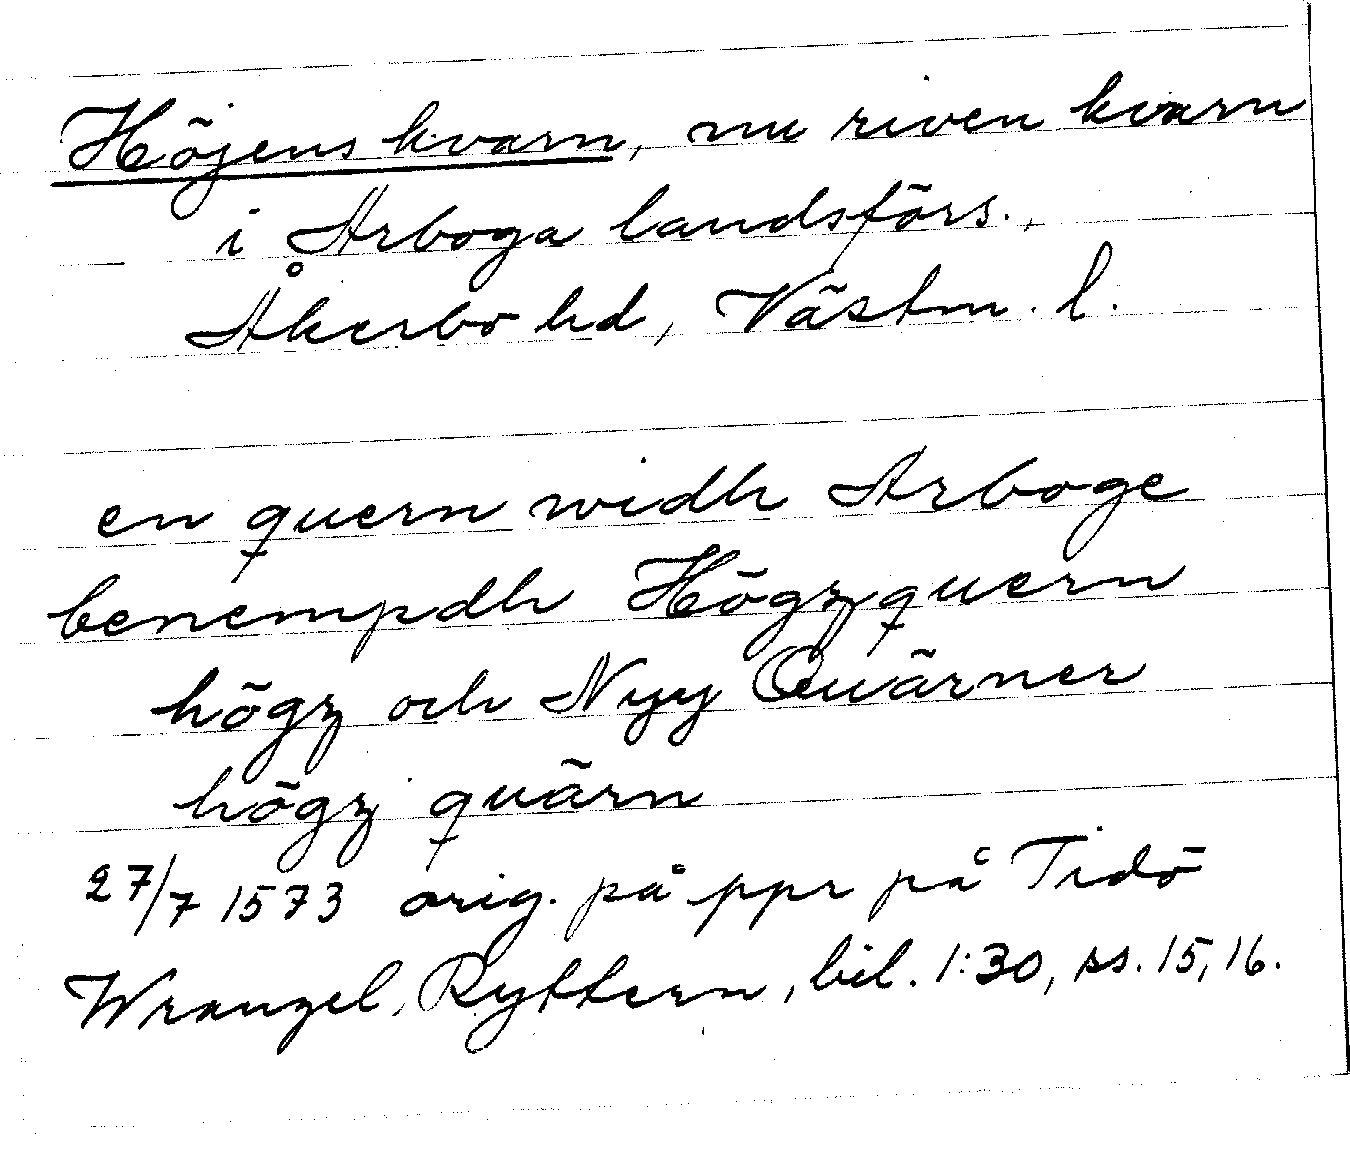 Höjens kvarn, nu riven kvarn
i Arboga landsförs.,
Åkerbo hd, Västm. l.
en quern widh Arboge
benempdh Högzquern
högz och Nyy Quärner
högz quärn
27/7 1573 orig. på ppr på Tidö
Wranzel, Ryttern, bil. 1:30, ss. 15, 16.